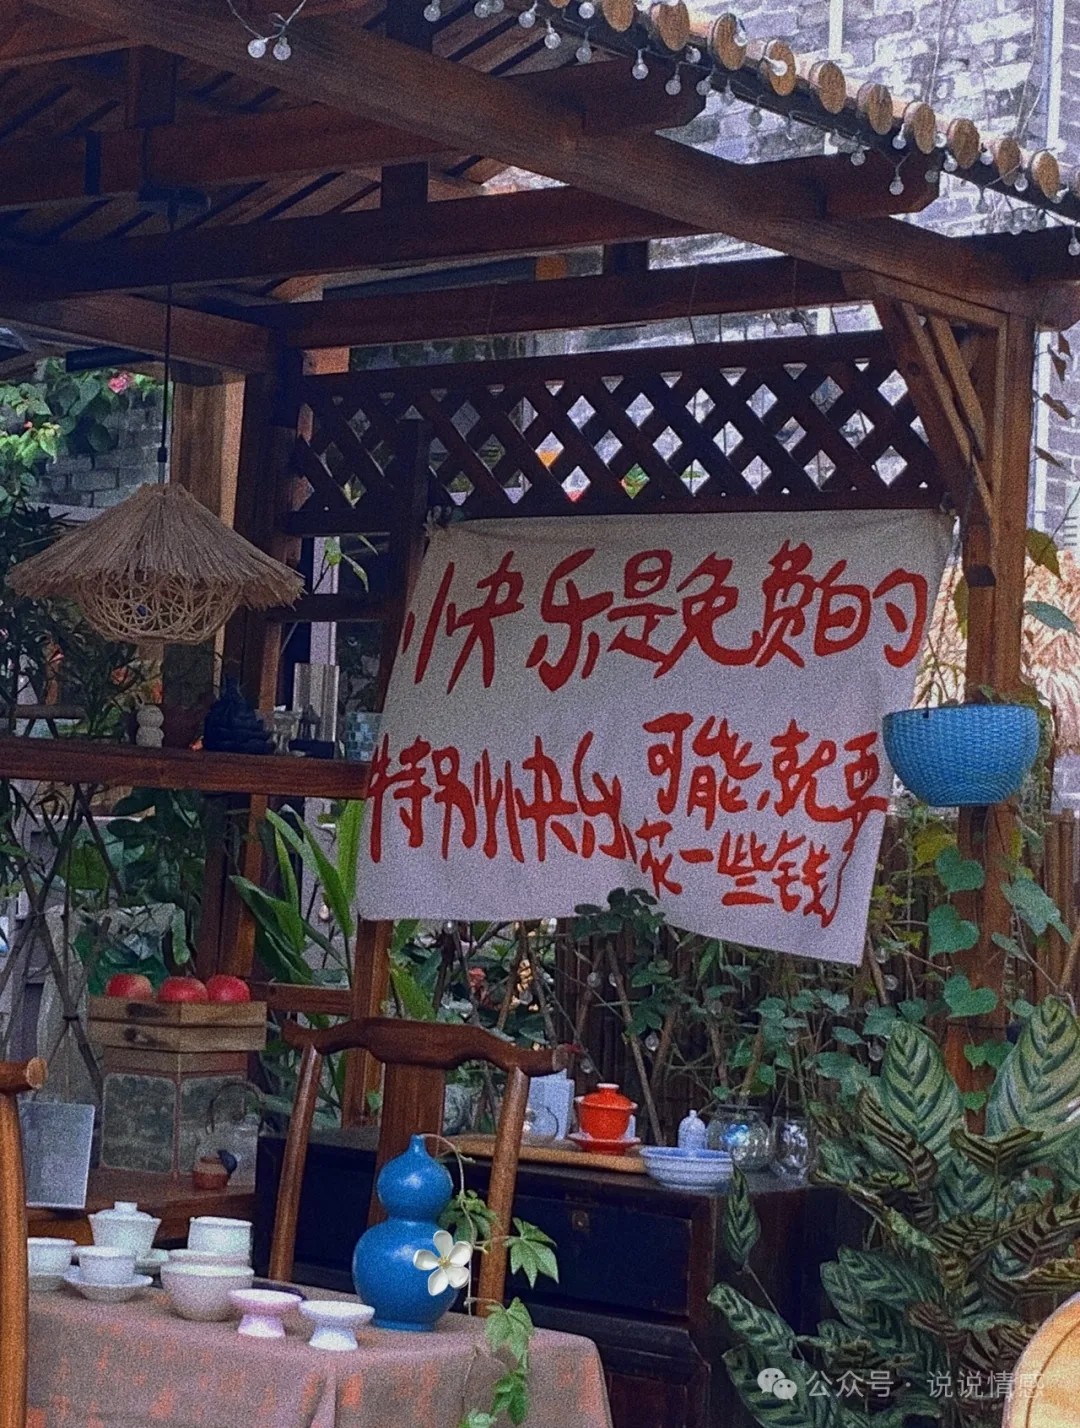 快乐是免费的
特别快乐可能就要
花一些钱
公众号·说说情感